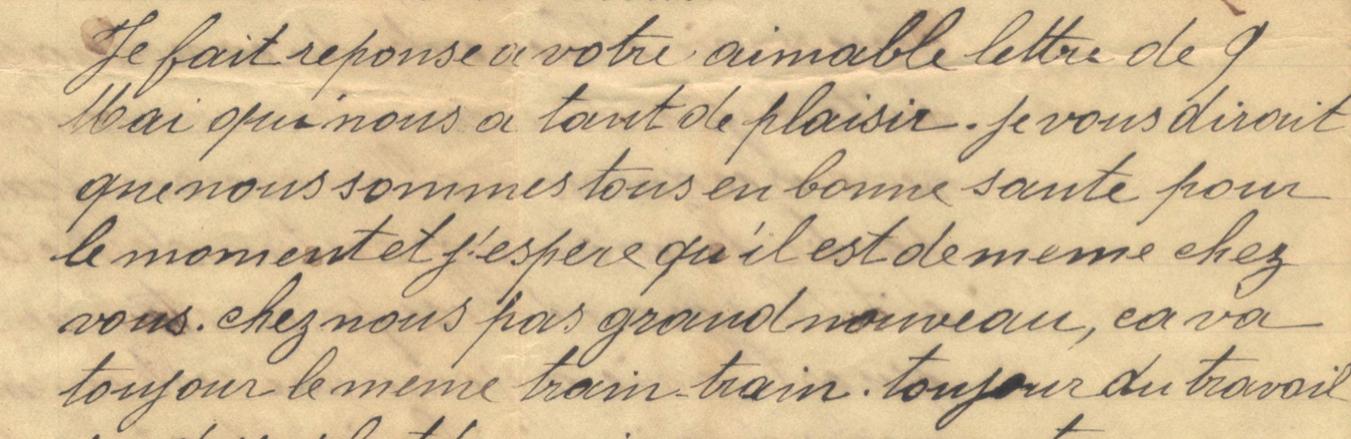 Je fait reponse a votre aimable lettre de 9
Mai qui nous a tant de plaisir. je vous dirait
que nous sommes tous en bonne sante pour
le moment et j'espere qu'il est de meme chez
vous. chez nous pas grand nouveau, ca va
toujour le meme train-train. toujour du travail